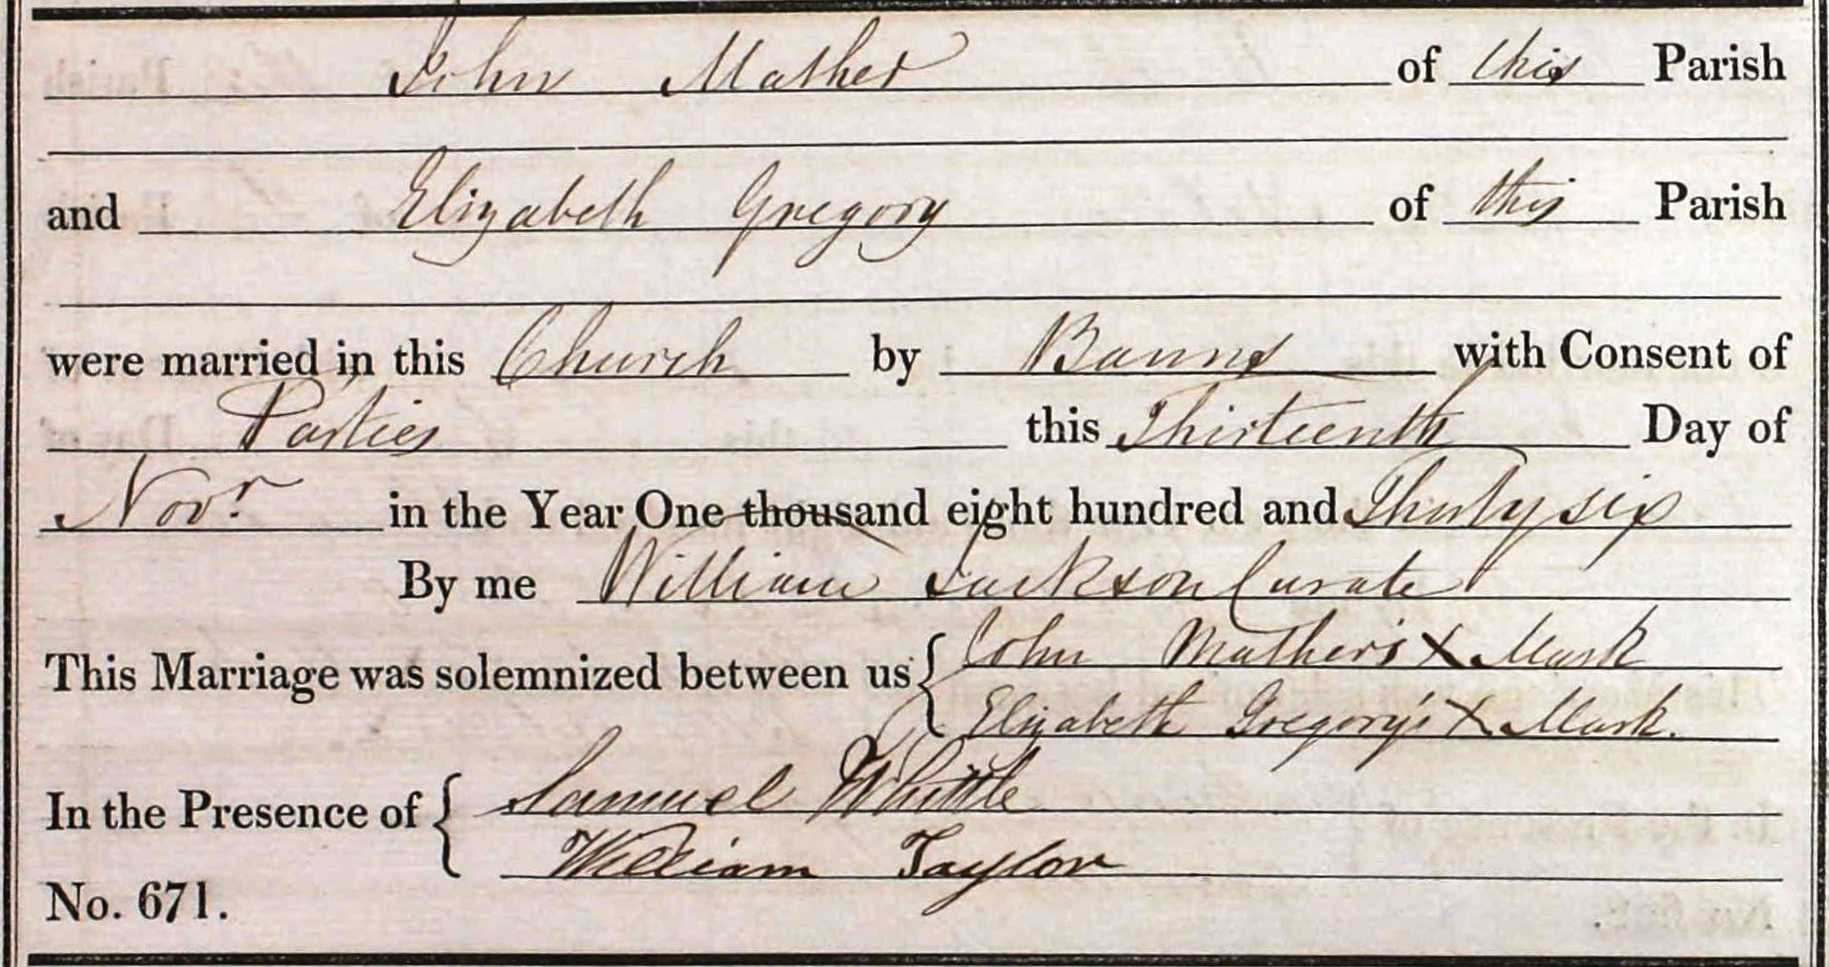 John Mather of this Parish
and Elizabeth Gregory of this Parish
were married in this Church by Banns with Consent of
Parties this Thirteenth Day of
Novr. in the Year One thousand eight hundred and Thirty six
By me William Jackson Curate
This Marriage was solemnized between us { John Mather's X Mark
Elizabeth Gregory's X Mark.
In the Presence of { Samuel Whittle
William Taylor
No. 671.